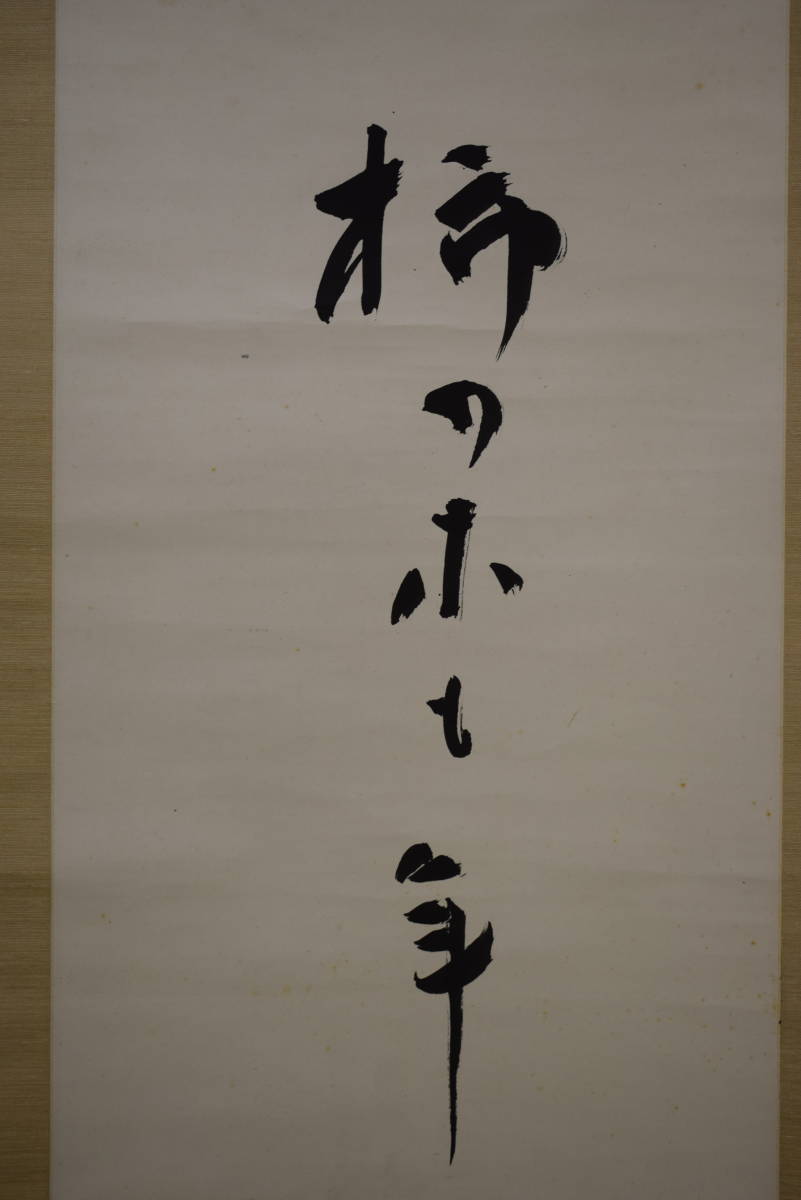 柿の木も年